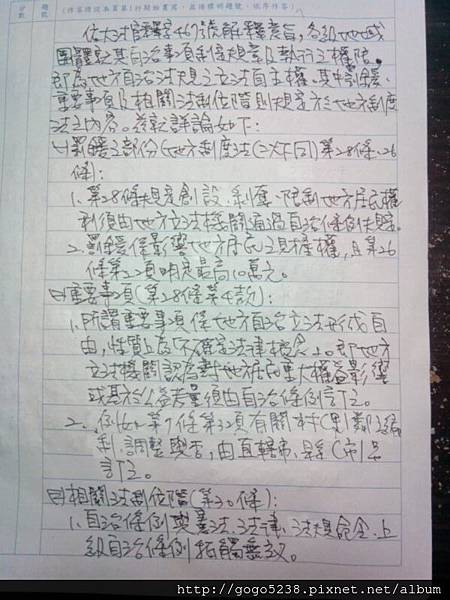 分數
題號
(作答請從本頁第1行開始書寫，並請標明題號，依序作答)
依大法官釋字467號解釋意旨，各級地域
團體就其自治事項制定規章及執行之權限。
即為地方自治法規之立法自主權，其中罰鍰、
重要事項及相關法制位階則規定於地方制度
法之內容。茲就詳論如下：
㈠罰鍰之部份(地方制度法(以下同)第28條、26
條)：
1. 第28條規定創設、剝奪、限制地方居民權
利須由地方立法機關通過自治條例快規定。
2. 罰鍰係影響地方居民之財產權，且第26
條第2項明定最高10萬元。
㈡重要事項(第28條第4款)：
1. 所謂重要事項係地方自治立法形成自
由，性質上為「不確定法律概念」。即地方
立法機關認為對地方居民重大權益影響
或基於公益考量須由自治條例信訂之。
2. 例如：第7條第3項有關村(里)鄰之編
制、調整與否，由直轄市、縣(市)另
訂之。
㈢相關法制位階(第30條)：
1. 自治條例與憲法、法律、法規命令、上
級自治條例牴觸無效。
http://gogo5238.pixnet.net/album